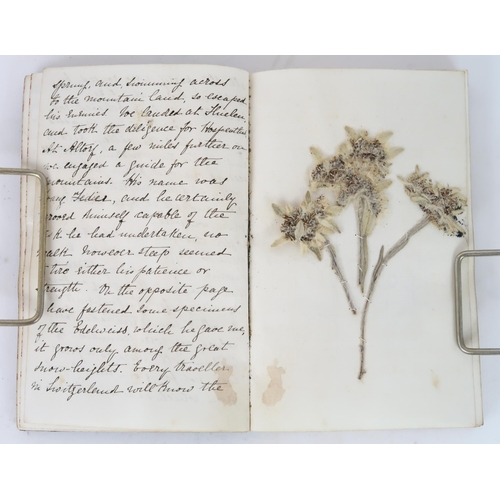 spring, and swimming across
to the mountain land, so escaped
his enemies. We landed at Fluelen
and took the diligence for Hospenthal
At Altorf, a few miles further on
we engaged a guide for the
mountains. His name was
, and he certainly
proved himself capable of the
task he had undertaken, no
walk however steep seemed
to tire either his patience or
strength. On the opposite page
I have fastened some specimens
of the Edelweiss, which he gave me,
it grows only among the great
snow-heights. Every traveller
in Switzerland will know the